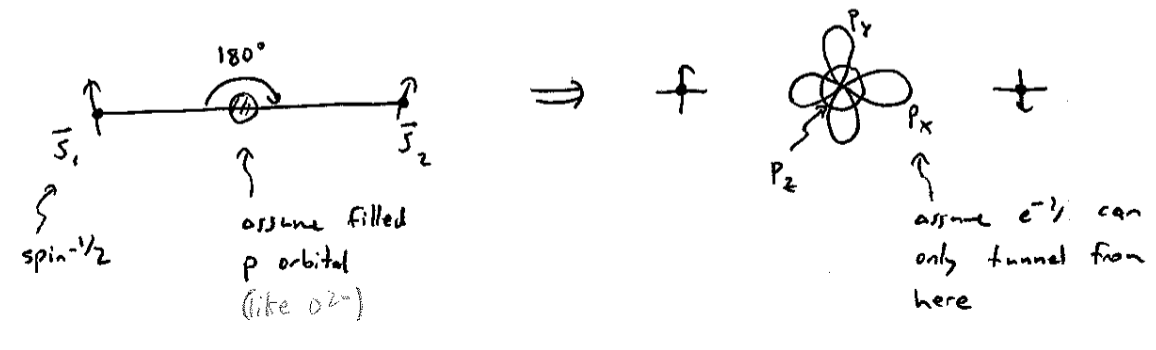 180°
S⃗₁
S⃗₂
spin-1/2
assume filled
p orbital
(like O²⁻)
⇒
Py
Px
Pz
assume e⁻'s can
only tunnel from
here